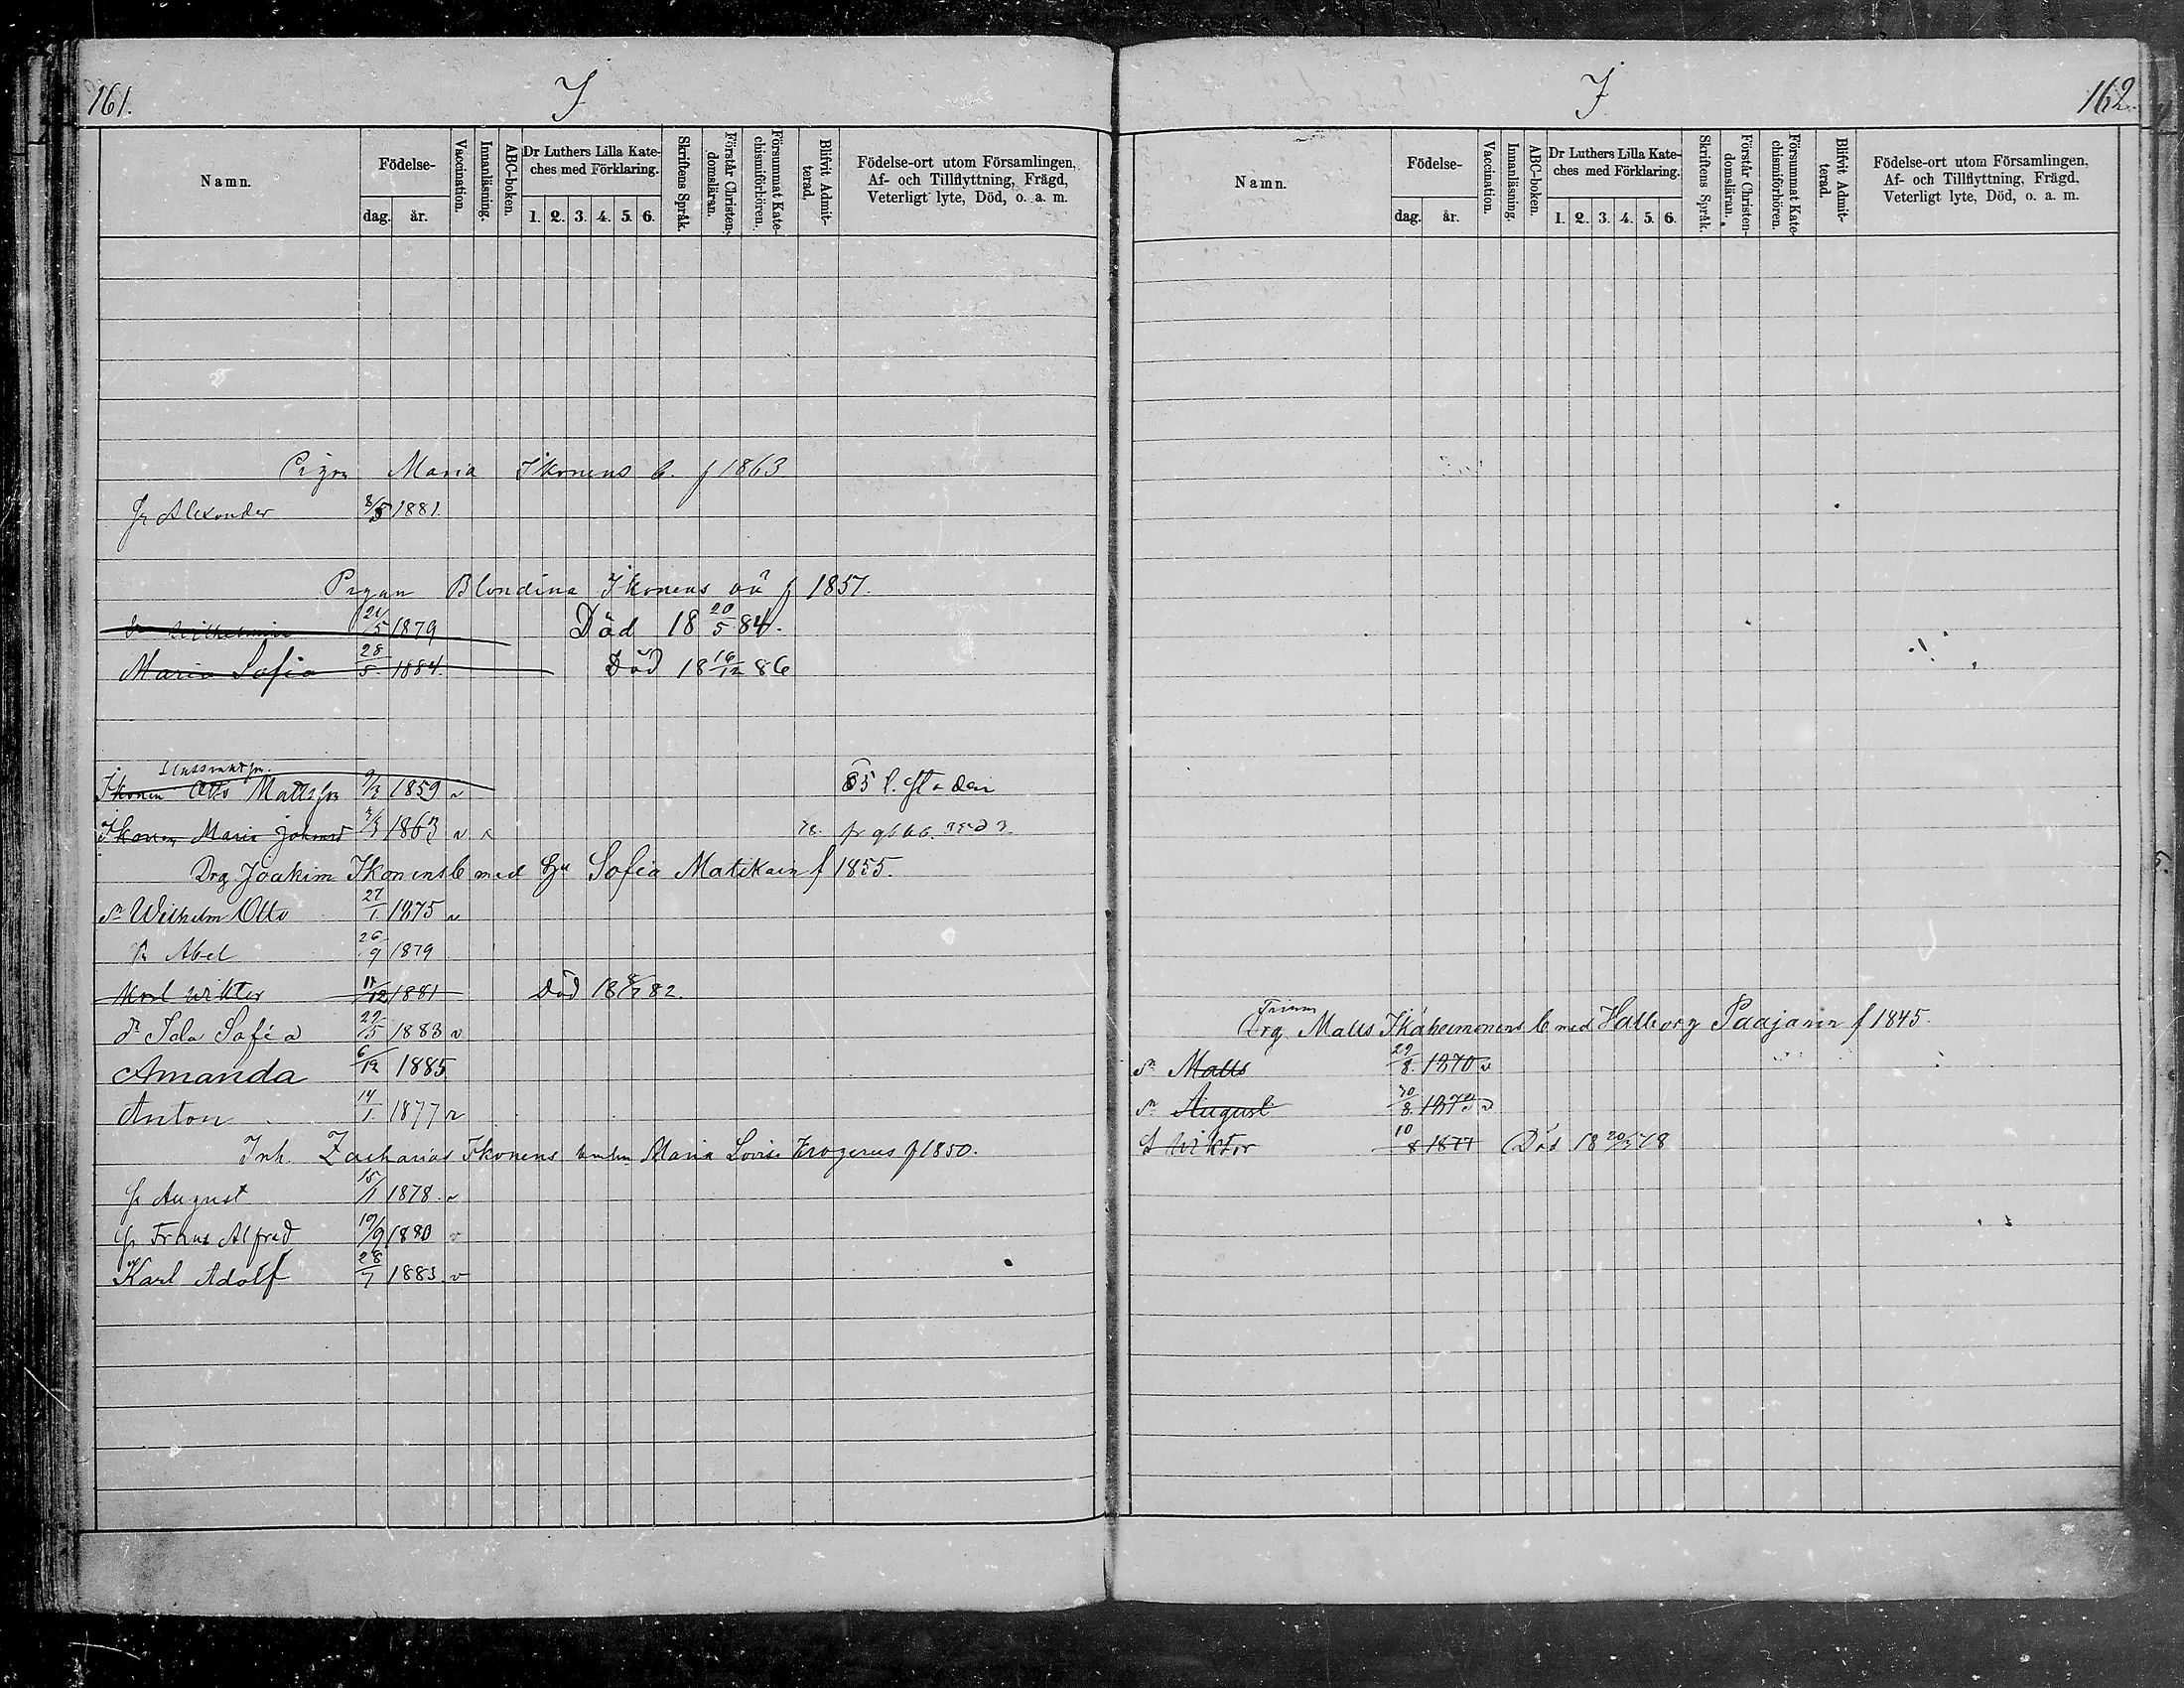 161.
I
Namn.
Födelse-
dag.
år.
Vaccination.
Innanläsning.
ABC-boken.
Dr Luthers Lilla Kate-
ches med Förklaring.
1. 2. 3. 4. 5. 6.
Skriftens Språk.
Förstår Christen-
domsläran.
Försummat Kate-
chismiförhören.
Blifvit Admit-
terad.
Födelse-ort utom Församlingen,
Af- och Tillflyttning, Frägd,
Veterligt lyte, Död, o. a. m.
Maria Ikonens b. f 1863
Alexander 1881
Pigan Blondina Ikonens f 1857.
Wilhelmina 21/5 1879 Död 18 20/5 84.
Maria Sofia 28/5 1884. Död 18 16/12 86
Ikonen Otto Mattsson 1859 v
Ikonen Maria 1863 v
Drg Joakim Ikonens b med Hu Sofia Matikain f 1855.
sn Wilhelm Otto 27/1 1875 v
sn Abel 26/9 1879
Karl Wiktor 1881 Död 18 82.
dr Ida Sofia 29/5 1883 v
Amanda 6/12 1885
Anton 14/1 1877 v
Inh. Zacharias Ikonens Maria Lovisa f 1850.
August 15/11 1878. v
Frans Alfred 19/9 1880 v
Karl Adolf 28/7 1883. v
I
162.
Namn.
Födelse-
dag.
år.
Vaccination.
Innanläsning.
ABC-boken.
Dr Luthers Lilla Kate-
ches med Förklaring.
1. 2. 3. 4. 5. 6.
Skriftens Språk.
Förstår Christen-
domsläran.
Försummat Kate-
chismiförhören.
Blifvit Admit-
terad.
Födelse-ort utom Församlingen,
Af- och Tillflyttning, Frägd,
Veterligt lyte, Död, o. a. m.
Drg Matts Ikäheimonens b med Halborg Paajanin f 1845.
sn Matts 29/8 1870 v
sn August 30/8 1873 v
Wiktor 10/8 1877 Död 18 78